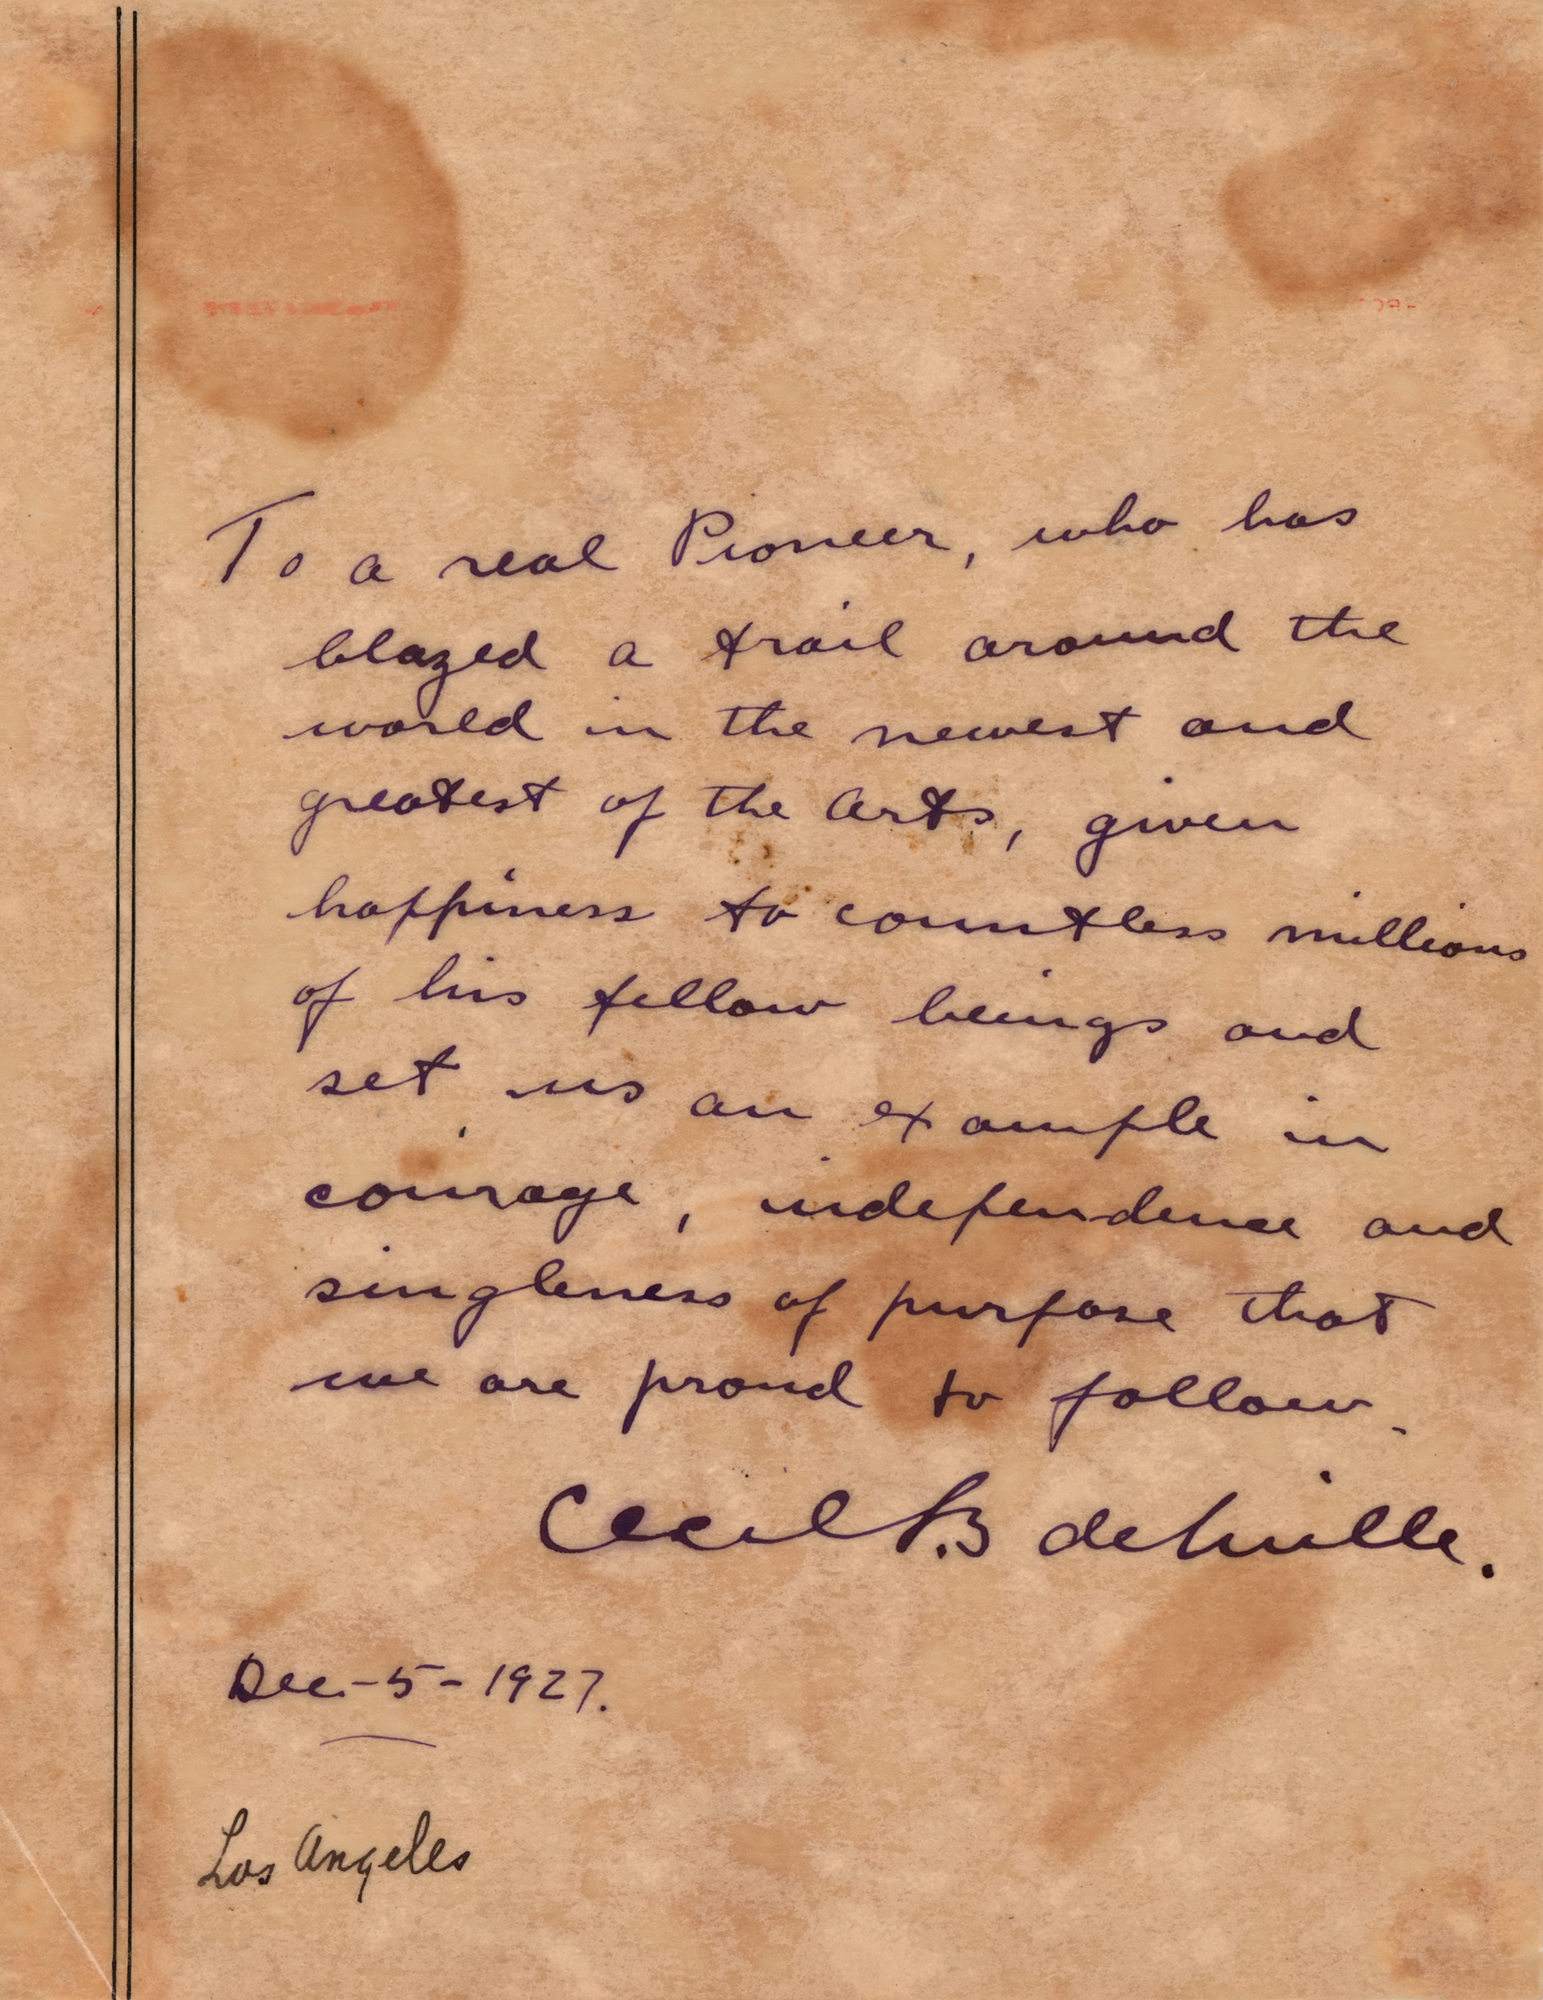 To a real Pioneer, who has
blazed a trail around the
world in the newest and
greatest of the Arts, given
happiness to countless millions
of his fellow beings and
set us an example in
courage, independence and
singleness of purpose that
we are proud to follow.
Cecil B deMille.
Dec.-5-1927.
Los Angeles